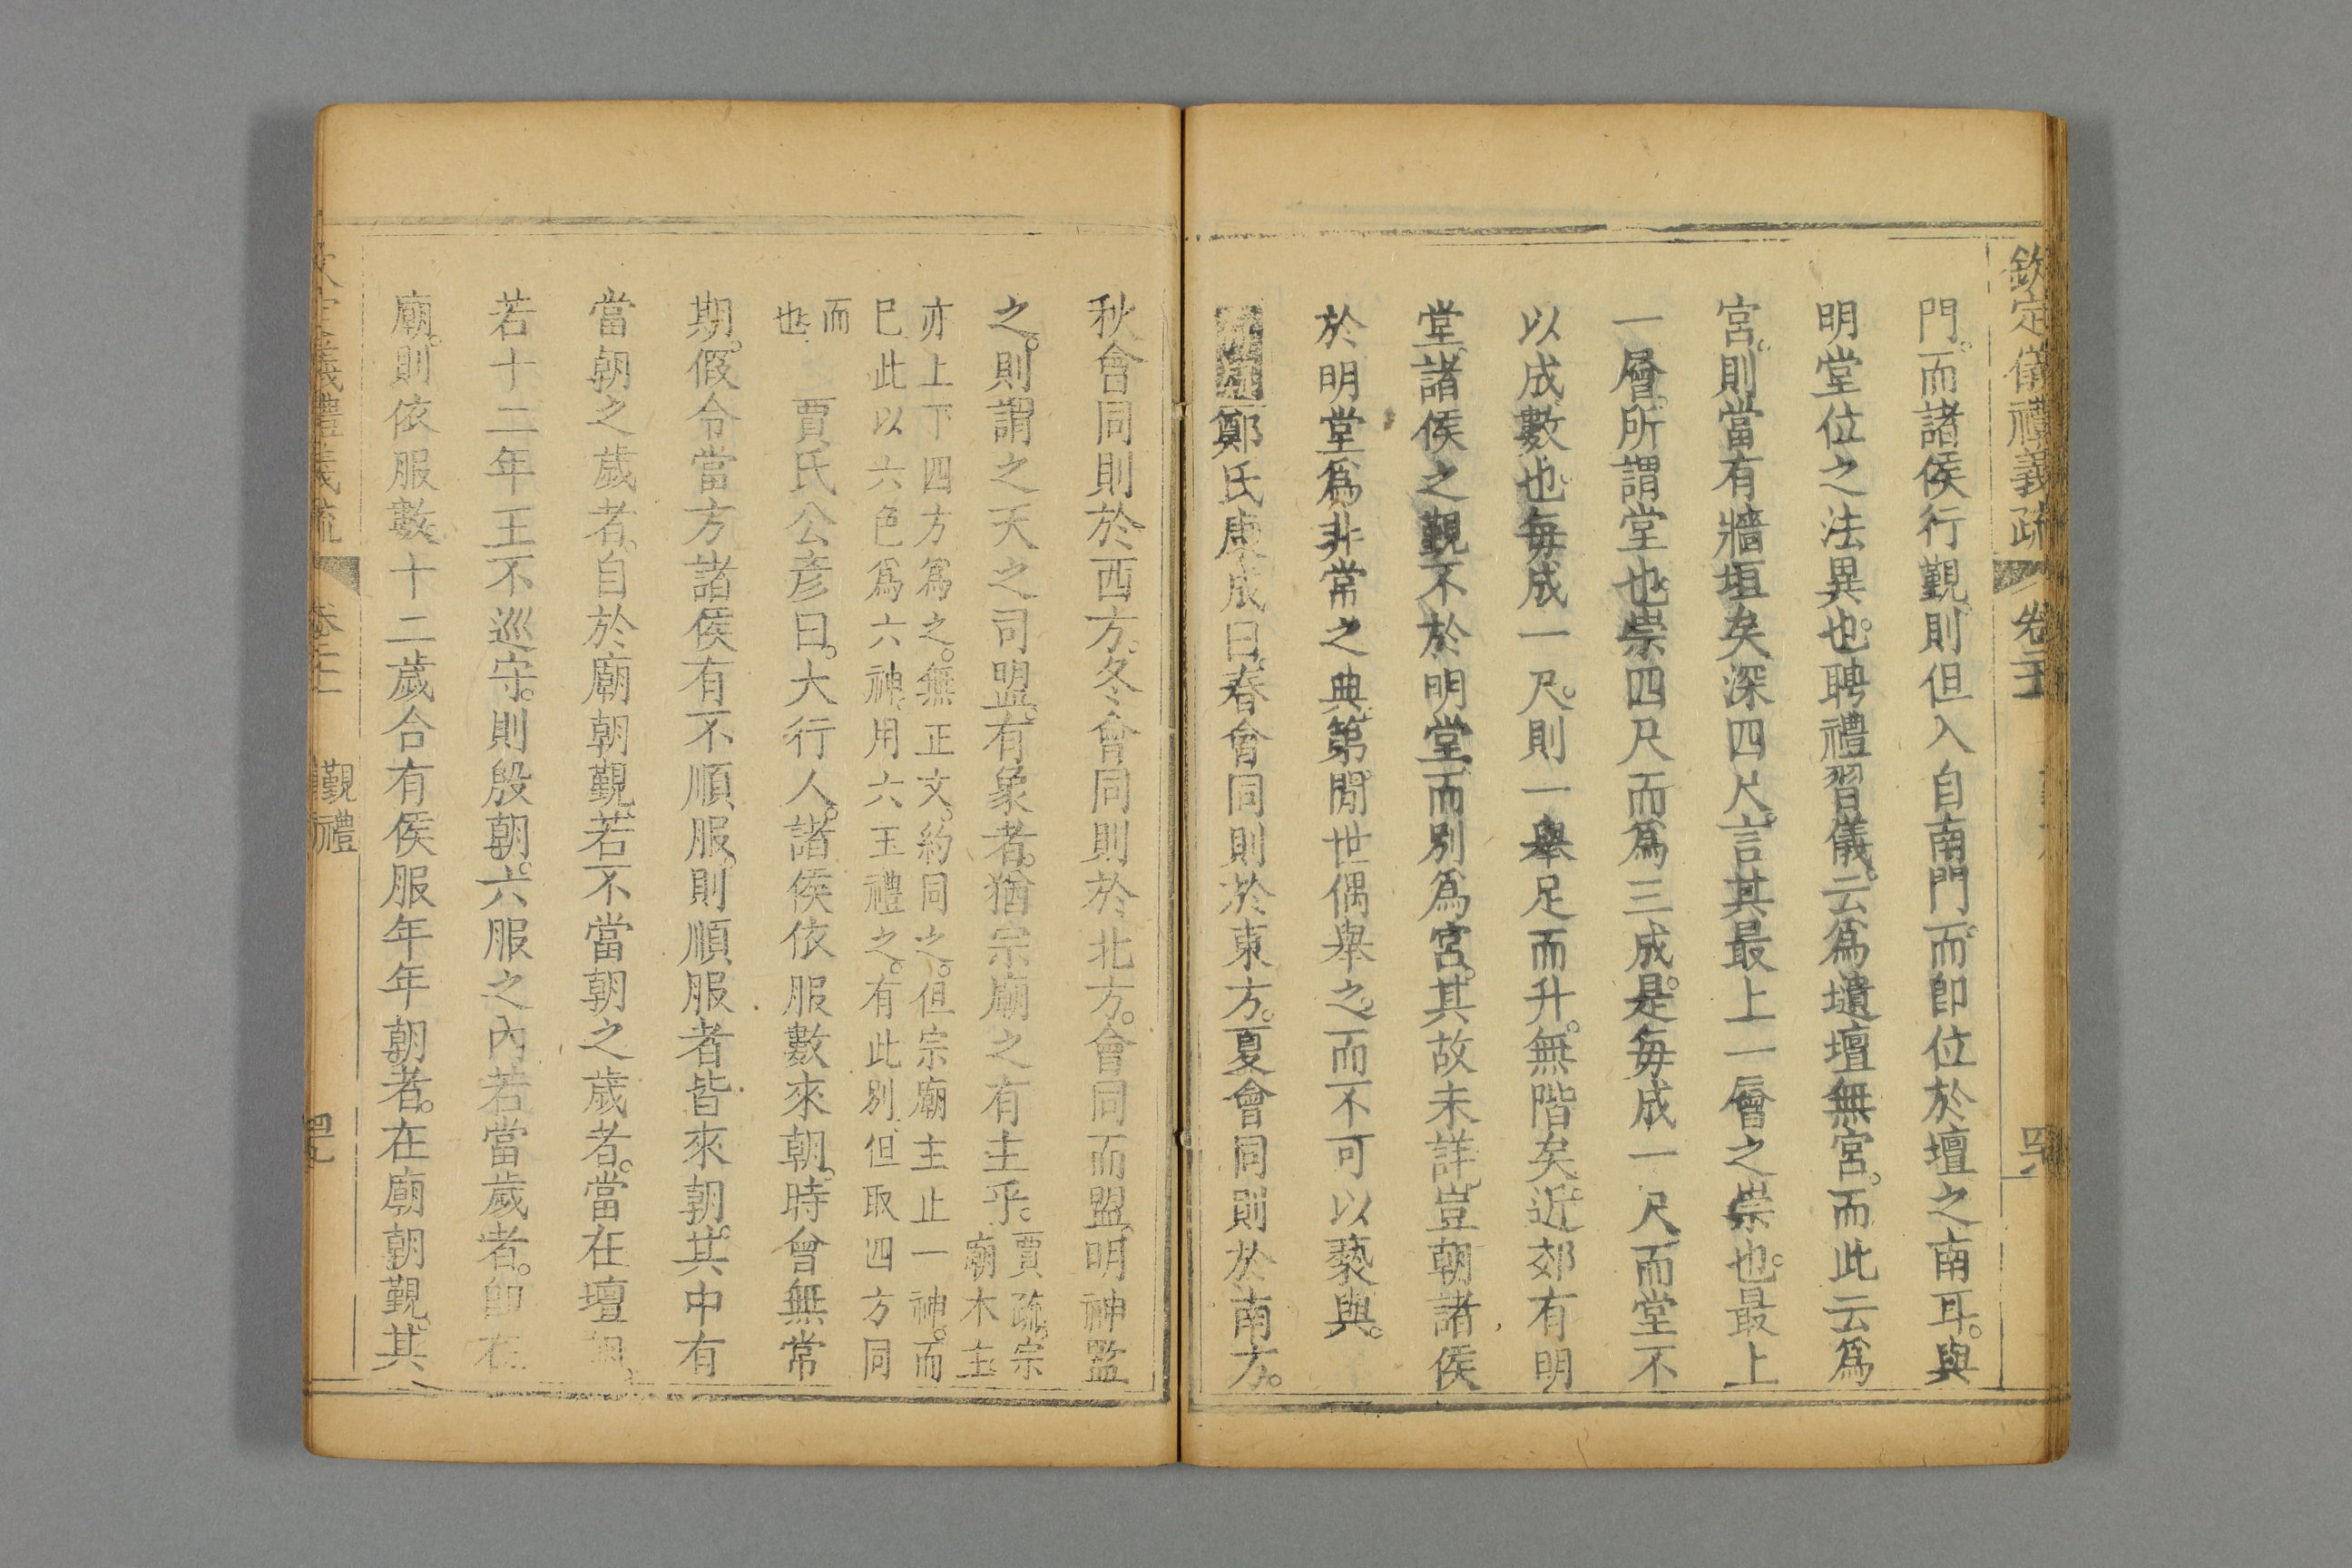 欽定儀禮義疏 卷二十
門。而諸侯行覲。則但入自南門。而卽位於壇之南耳。與
明堂位之法異也。聘禮習儀。云爲壝壇無宮。而此云爲
宮。則當有牆垣矣。深四尺。言其最上一層之崇也。最上
一層。所謂堂也。崇四尺而爲三成。是每成一尺。而堂不
以成數也。每成一尺。則一舉足而升。無階矣。近郊有明
堂。諸侯之覲不於明堂。而別爲宮。其故未詳。豈朝諸侯
於明堂爲非常之典。第間世偶舉之。而不可以褻與。
鄭氏康成曰。春會同則於東方。夏會同則於南方。
秋會同則於西方。冬會同則於北方。會同而盟。明神監
之。則謂之天之司盟。有象者。猶宗廟之有主乎。賈疏。宗
廟木主
亦上下四方爲之。無正文。約同之。但宗廟主止一神。而
已此以六色爲六神。用六玉禮之。有此別。但取四方同
而
也
賈氏公彥曰。大行人。諸侯依服數來朝。時會無常
期。假令當方諸侯有不順服。則順服者皆來朝。其中有
當朝之歲者。自於廟朝覲。若不當朝之歲者。當在壇朝。
若十二年王不巡守。則殷朝。六服之內若當歲者。卽在
廟。則依服數。十二歲合有侯服年年朝者。在廟朝覲。其
欽定儀禮義疏 卷二十 覲禮